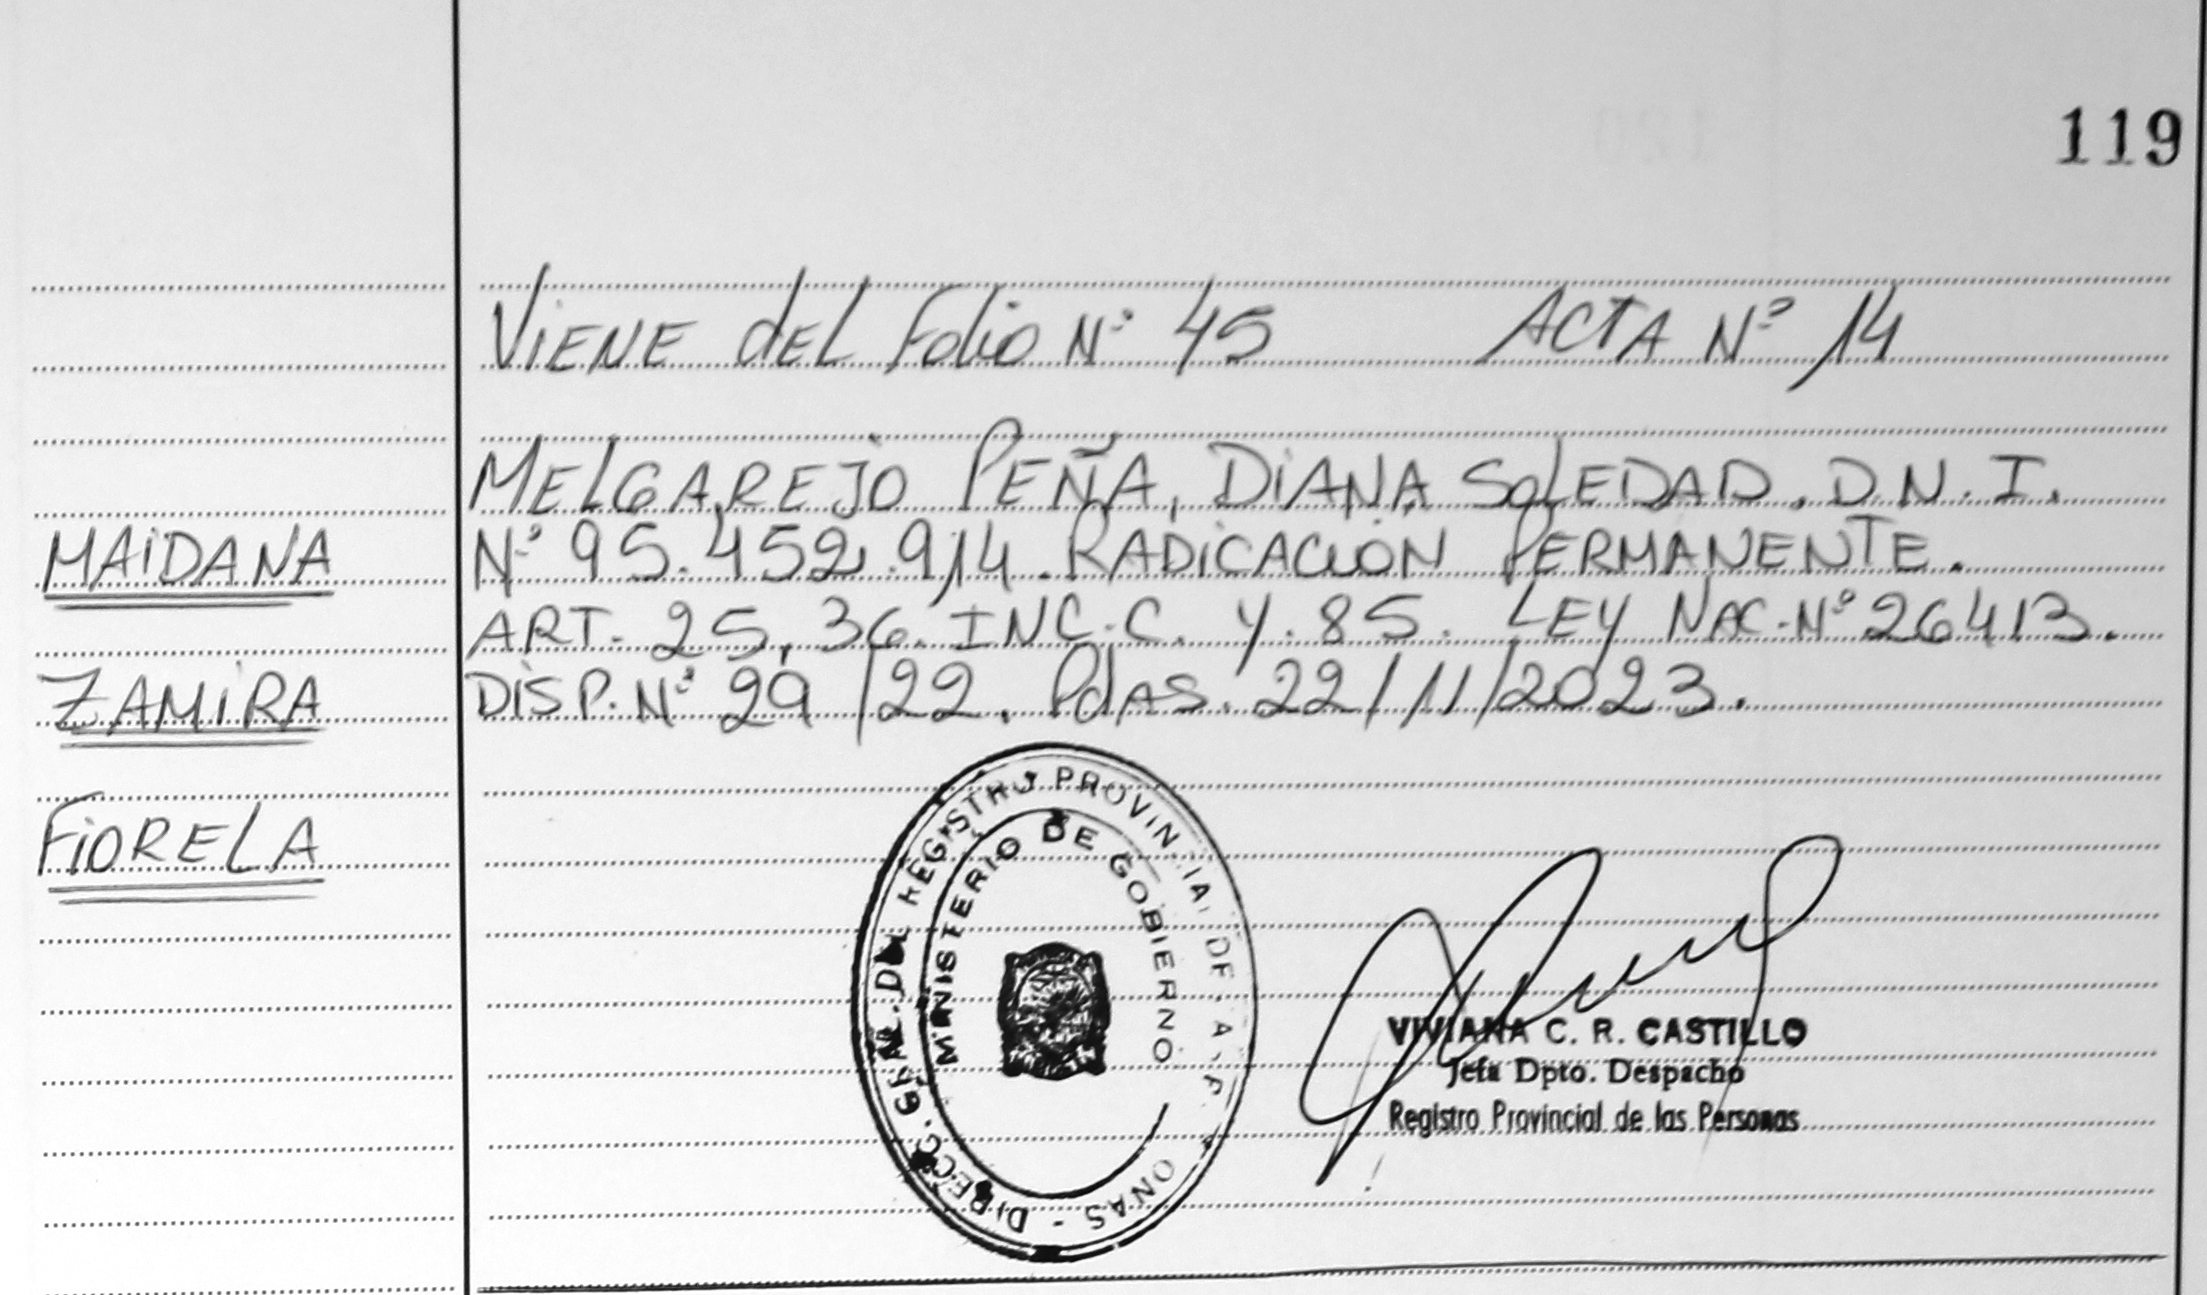 119
Viene del Folio Nº 45 Acta Nº 14
Melgarejo Peña, Diana Soledad. D.N.I.
Maidana
Nº 95.452.914. Radicación Permanente.
Art. 25, 36. Inc. C. y. 85. Ley Nac. Nº 26413.
Zamira
Disp. Nº 29/22. Pdas. 22/11/2023.
Fiorela
DIRECC. GRAL. DEL REGISTRO PROVINCIAL DE
MINISTERIO DE GOBIERNO
VIVIANA C. R. CASTILLO
Jefa Dpto. Despacho
Registro Provincial de las Personas